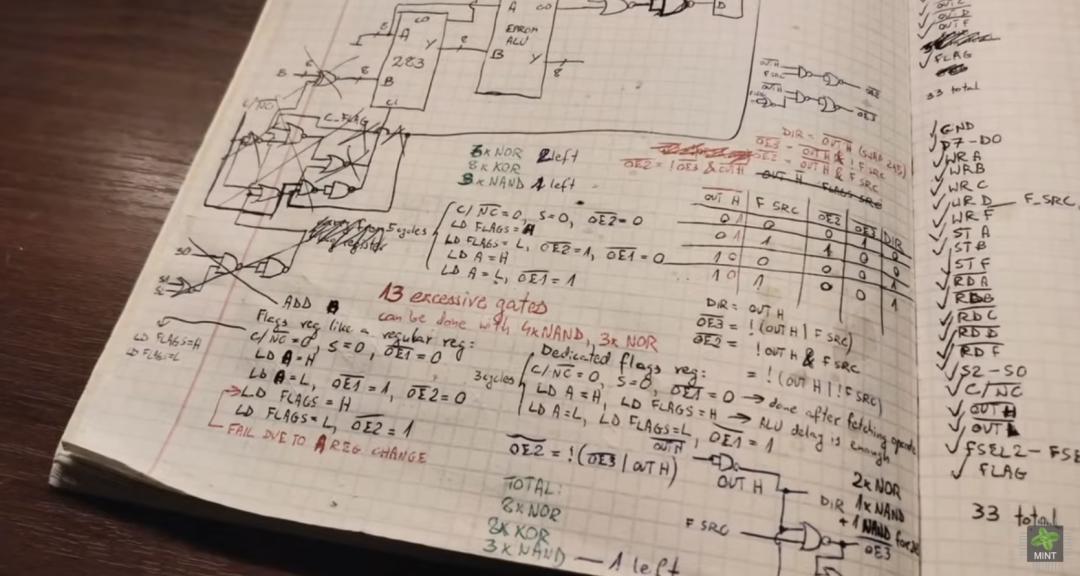 A
CO
EPROM
ALU
B
8
CO
A
Y
283
B
8
8
8
8
C/NC
C_FLAG
D
OUT H
F SRC
OE2
OUT H
OE3
DIR = OUT H (SWAP 245)
OE3 = OUT H & ! F SRC
OE2 = OUT H & F SRC
OE2 = !OE3 & OUT H
OUT H FLAGS SRC
NOR 2 left
8x XOR
3x NAND 1 left
OUT H F SRC OE2 OE3 DIR
0 1 0 0 1 0
0 1 1 1 0 0
1 0 0 0 0 1
1 0 1 0 0 1
5 cycles
C/NC=0, S=0, OE2=0
LD FLAGS=H
LD FLAGS=L, OE2=1, OE1=0
LD A=H
LD A=L, OE1=1
SO
ADD
13 excessive gates
can be done with 4xNAND, 3x NOR
DIR = OUT H
OE3 = !(OUT H | F SRC)
OE2 = !OUT H & F SRC
= !(OUT H | !F SRC)
LD FLAGS=H
LD FLAGS=L
Flags reg like a regular reg:
C/NC=0, S=0, OE1=0
LD A=H
LD A=L, OE1=1, OE2=0
LD FLAGS=H
LD FLAGS=L, OE2=1
FAIL DUE TO A REG CHANGE
3 cycles
Dedicated flags reg:
C/NC=0, S=0, OE1=0 → done after fetching
LD A=H, LD FLAGS=H → ALU delay is enough
LD A=L, LD FLAGS=L, OE1=1
OE2 = !(OE3 | OUT H)
OUT H
OUT H
DIR
F SRC
OE3
2x NOR
1x NAND
+1 NAND for
TOTAL:
8x NOR
8x XOR
3x NAND — 1 left
OUT F
FLAG
33 total
GND
D7-D0
WR A
WR B
WR C
WR D F_SRC
WR F
ST A
ST B
ST F
RD A
RD B
RD C
RD D
RD F
S2-S0
C/NC
OUT H
OUT L
FSEL2-
FLAG
33 total
MINT